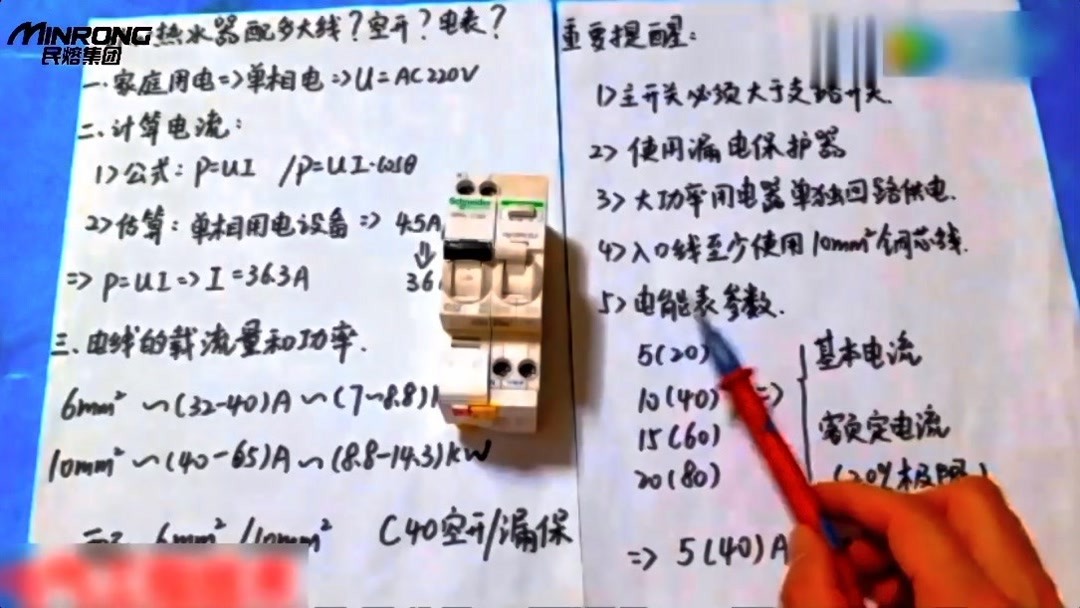 MINRONG
民熔集团
热水器配多大线?空开?电表?
一.家庭用电=>单相电=>U=AC220V
二.计算电流:
1>公式:P=UI /P=UI·cosθ
2>估算:单相用电设备=> 4.5A
=> P=UI=>I=36.3A 36
三.电线的载流量和功率.
6mm² ~(32-40)A ~(7~8.8)
10mm² ~(40-65)A ~(8.8-14.3)kW
6mm²/10mm² C40空开/漏保
Schneider
重要提醒:
1>主开关必须大于支路开关.
2>使用漏电保护器
3>大功率用电器单独回路供电.
4>入口线至少使用10mm²铜芯线.
5>电能表参数.
5(20) 基本电流
10(40) =>
15(60) 额定电流
20(80) (20%极限)
=> 5(40)A